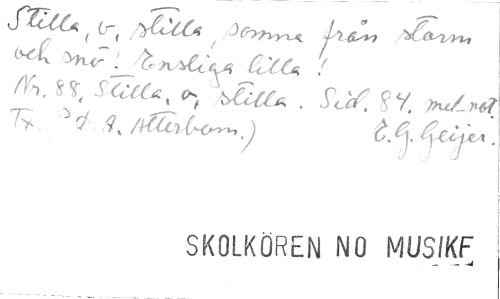 Stilla, o, stilla, somna från storm
och snö! Ensliga lilla!
Nr. 88, Stilla, o, stilla. Sid. 84. mel-not.
Tx. P. D. A. Atterbom.) E. G. Geijer.
SKOLKÖREN NO MUSIKF